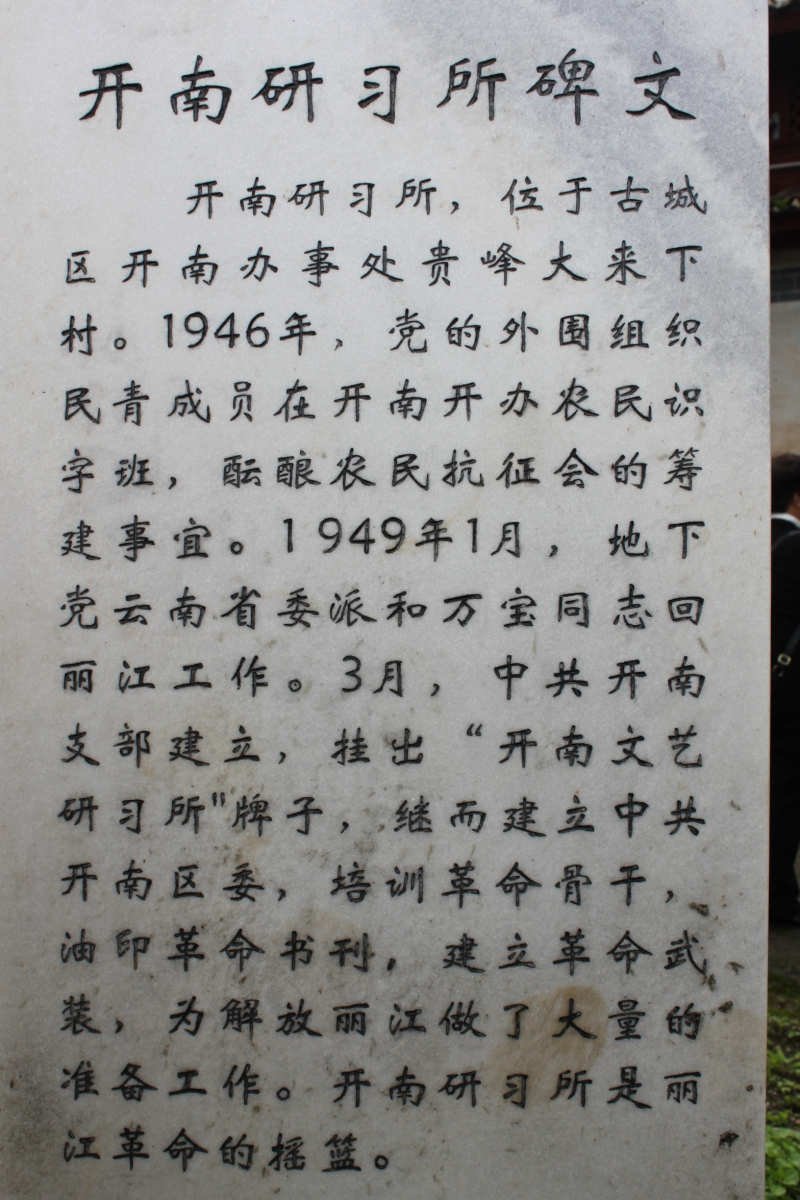 开南研习所碑文
开南研习所，位于古城
区开南办事处贵峰大来下
村。1946年，党的外围组织
民青成员在开南开办农民识
字班，酝酿农民抗征会的筹
建事宜。1949年1月，地下
党云南省委派和万宝同志回
丽江工作。3月，中共开南
支部建立，挂出“开南文艺
研习所"牌子，继而建立中共
开南区委，培训革命骨干，
油印革命书刊，建立革命武
装，为解放丽江做了大量的
准备工作。开南研习所是丽
江革命的摇篮。